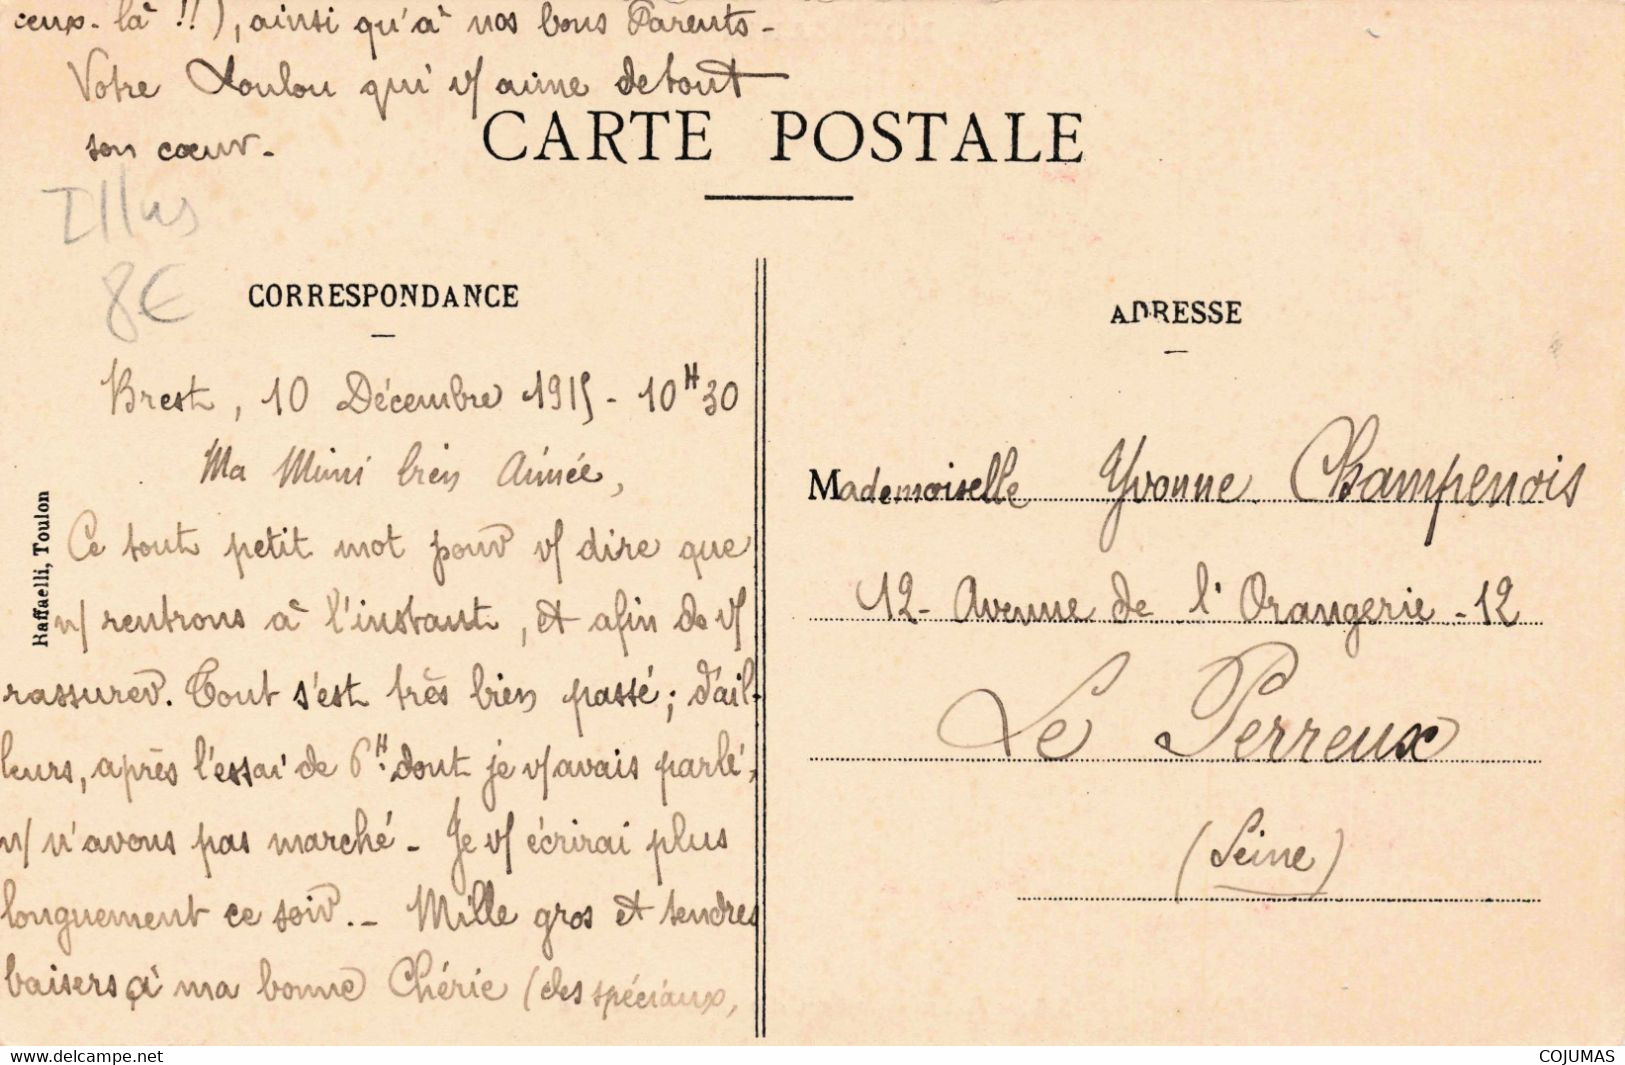 ceux-là !!), ainsi qu'à nos bons Parents-
Votre Loulou qui v/ aime de tout
son cœur-
CARTE POSTALE
Illus
8€
CORRESPONDANCE
Brest, 10 Décembre 1915 - 10H30
Ma Mimi bien Aimée,
Ce tout petit mot pour v/ dire que
n/ rentrons à l'instant, et afin de v/
rassurer. Tout s'est très bien passé; d'ail-
leurs, après l'essai de 6H. dont je v/avais parlé,
n/ n'avons pas marché - Je v/ écrirai plus
longuement ce soir.- Mille gros et tendres
baisers à ma bonne Chérie (des spéciaux,
Raffaelli, Toulon
ADRESSE
Mademoiselle Yvonne Champenois
12- Avenue de l'Orangerie -12
Le Perreux
(Seine)
www.delcampe.net
COJUMAS